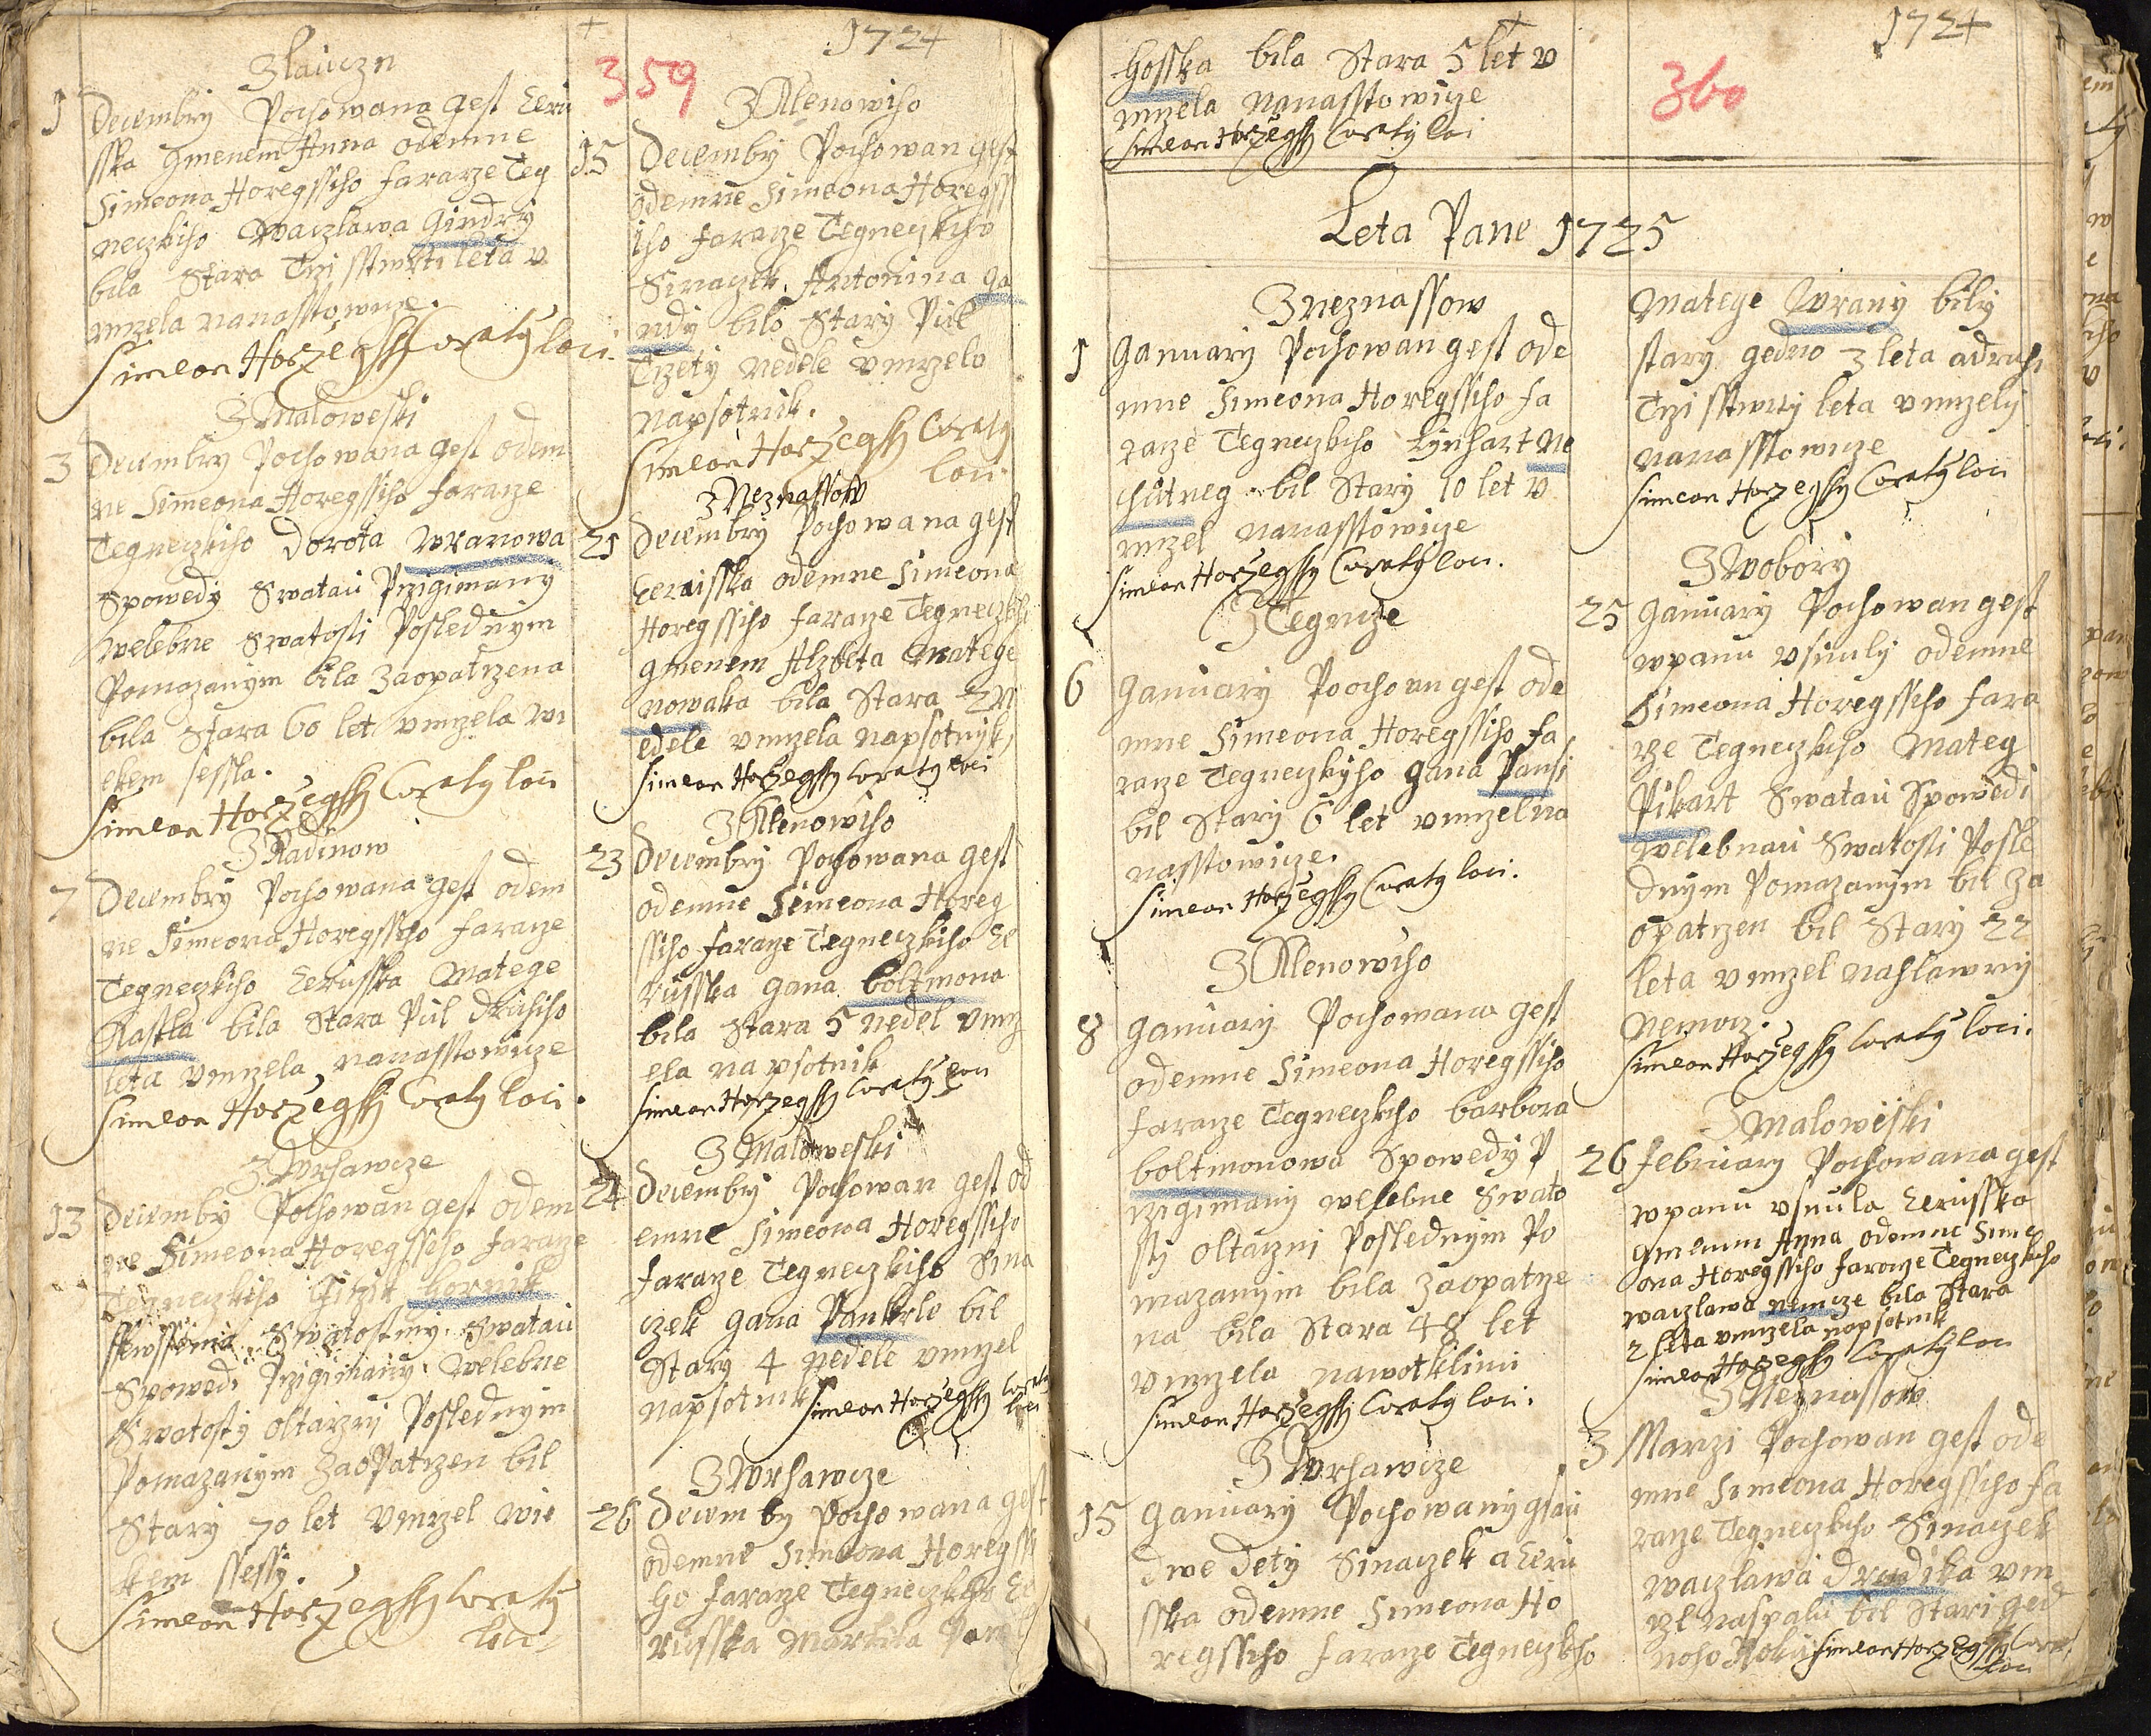 1724
359
Z laiuczn
1 Decembry Pochowana gest Ceru
sska gmenem Anna odemne
Simeona Horegssiho fararze Teg
neczkiho Waczlawa Gindry
bila Stara Trzi sstwrti leta v
mrzela nanasstowicze.
Simeon Horzegssy Coraty loci.
Z Maloweski
3 Decembry Pochowana gest odem
ne Simeona Horegssiho fararze
Tegneczkiho Dorota Wranowa
Spowedy Swatau Przigimany
welebne Swatosti Poslednym
Pomazanym bila Zaopatrzena
bila Stara 60 let vmrzela wi
ekem sessla.
Simeon Horzegssy Coraty loci
Z Radinow
7 Decembry Pochowana gest odem
ne Simeona Horegssiho fararze
Tegneczkiho Cerusska Matege
Kastla bila Stara Pul druhiho
leta vmrzela nanasstowicze
Simeon Horzegssy Coraty loci.
Z Wrhawcze
13 Decemby Pochowan gest odem
ne Simeona Horegssiho fararze
Tegneczkiho
Swatostmy Swatau
Spowedi Przigimany Welebne
Swatosty oltarzny Poslednym
Pomazanym Zaopatrzen bil
Stary 70 let vmrzel wie
kem sessly.
Simeon Horzegssy Coraty
loci
Z Klenowiho
15 Decemby Pochowan gest
odemne Simeona Horegss
iho fararze Tegneczkiho
Sinaczek Antonina Ga
ndy bilo Stary Pul
Trzety nedele vmrzelo
napsotnik.
Simeon Horzegssy Coraty
loci.
Z Neznassow
21 Decembry Pochowana gest
Cerusska odemne Simeona
Horegssiho fararze Tegneczkiho
gmenem Alzbeta Matege
nowaka bila Stara 2 n
edele vmrzela napsotnyk
Simeon Horzegssy Coraty loci
Z Klenowiho
23 Decembry Pochowana gest
odemne Simeona Horeg
ssiho fararze Tegneczkiho Ce
russka Gana boltmona
bila Stara 5 nedel vmrz
ela napsotnik
Simeon Horzegssy Coraty loci
Z Maloweski
24 Decembry Pochowan gest od
emne Simeona Horegssiho
fararze Tegneczkiho Sina
czek Gana Pankrle bil
Stary 4 nedele vmrzel
napsotnik Simeon Horzegssy Coraty
loci
Z Wrhawcze
26 Decemby Pochowana gest
odemne Simeona Horegssi
ho fararze Tegneczkiho Ce
russka Markita
1724
360
hosska bila Stara 5 let v
mrzela nanasstowicze
Simeon Horzegssy Coraty loci
Leta Pane 1725
Z Neznassow
1 Ganuary Pochowan gest ode
mne Simeona Horegssiho fa
rarze Tegneczkiho Lynhart Ne
chutneg bil Stary 10 let v
mrzel nanasstowicze
Simeon Horzegssy Coraty loci.
Z Tegncze
6 Ganuary Poochowan gest ode
mne Simeona Horegssiho fa
rarze Tegneczkyho Gana Pansi
bil Stary 6 let vmrzel na
nasstowicze.
Simeon Horzegssy Coraty loci.
Z Klenowiho
8 Ganuary Pochowana gest
odemne Simeona Horegssiho
fararze Tegneczkiho barbora
boltmonowa Spowedy P
rzigimany welebne Swato
sty oltarzni Poslednym Po
mazanym bila Zaopatrze
na bila Stara 48 let
vmrzela nawotklinu
Simeon Horzegssy Coraty loci.
Z Wrhawcze
15 Ganuary Pochowany gsau
dwe dety Sinaczek a Ceru
sska odemne Simeona Ho
regssiho fararze Tegneczkiho
Matege Wrany bily
stary gedno 3 leta a druhi
Trzi sstwrty leta vmrzely
nanasstowicze
Simeon Horzegssy Coraty loci
Z Wobory
25 Ganuary Pochowan gest
wpanu vsnuly odemne
Simeona Horegssiho fara
rze Tegneczkiho Mateg
Pikart Swatau Spowedi
welebnau Swatosti Posle
dnym Pomazanym bil za
opatrzen bil Stary 22
leta vmrzel nahlawny
nemocz.
Simeon Horzegssy Coraty loci.
Z Maloweski
26 february Pochowana gest
wpanu vsnula Cerusska
gmenem Anna odemne Sime
ona Horegssiho fararze Tegneczkiho
waczlawa nimcze bila Stara
2 leta vmrzela napsotnik
Simeon Horzegssy Coraty loci
Z Neznassow
3 Marzi Pochowan gest ode
mne Simeona Horegssiho fa
rarze Tegneczkiho Sinaczek
waczlawa Drudika vm
rzel naspalu bil Stari ged
noho Roku Simeon Horzegssy Coraty
loci